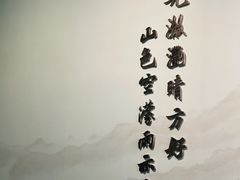 光潋滟晴方好
山色空濛雨亦